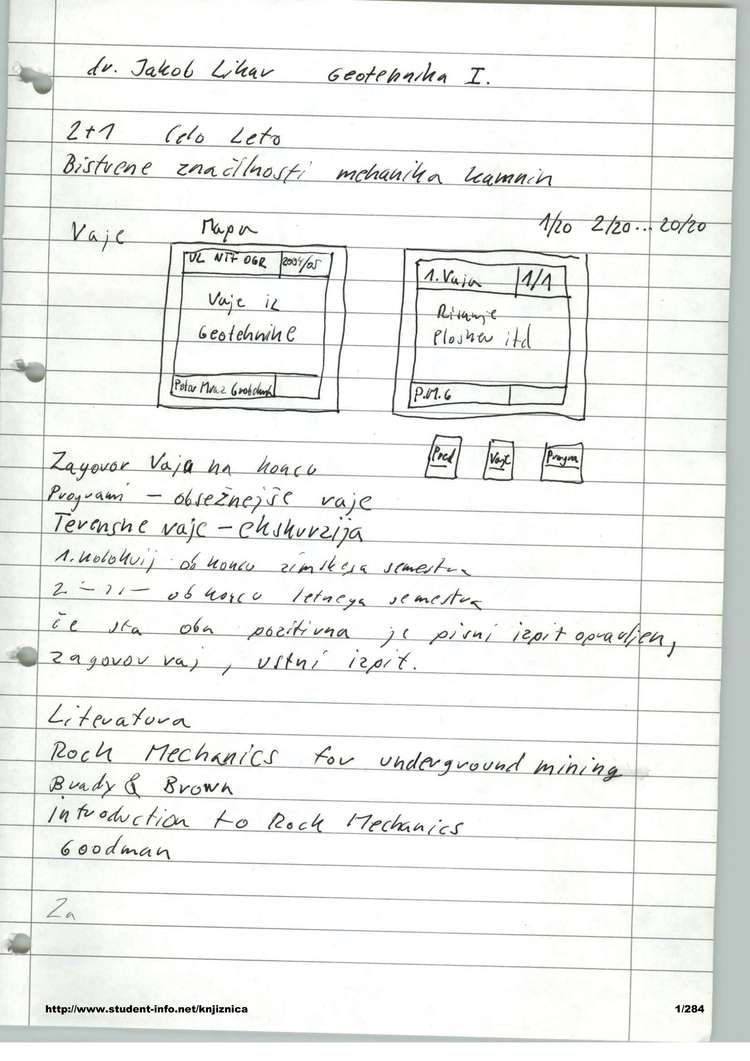 dr. Jakob Likar Geotehnika I.
2+1 Celo Leto
Bistvene značilnosti mehanika kamnin
Vaje Mapa 1/20 2/20... 20/20
UL NTF OGR 2004/05
Vaje iz
Geotehnike
Peter Mraz Geotehnik
1. Vaja 1/1
Risanje
Ploskev itd
P.M. G
Pred Vaje Progra
Zagovor Vaja na koncu
Programi – obsežnejše vaje
Terenske vaje – ekskurzija
1. kolokvij ob koncu zimskega semestra
2. –〃– ob koncu letnega semestra
če sta oba pozitivna je pisni izpit opravljen,
zagovor vaj, ustni izpit.
Literatura
Rock Mechanics for underground mining
Brady & Brown
introduction to Rock Mechanics
Goodman
Za
http://www.student-info.net/knjiznica 1/284